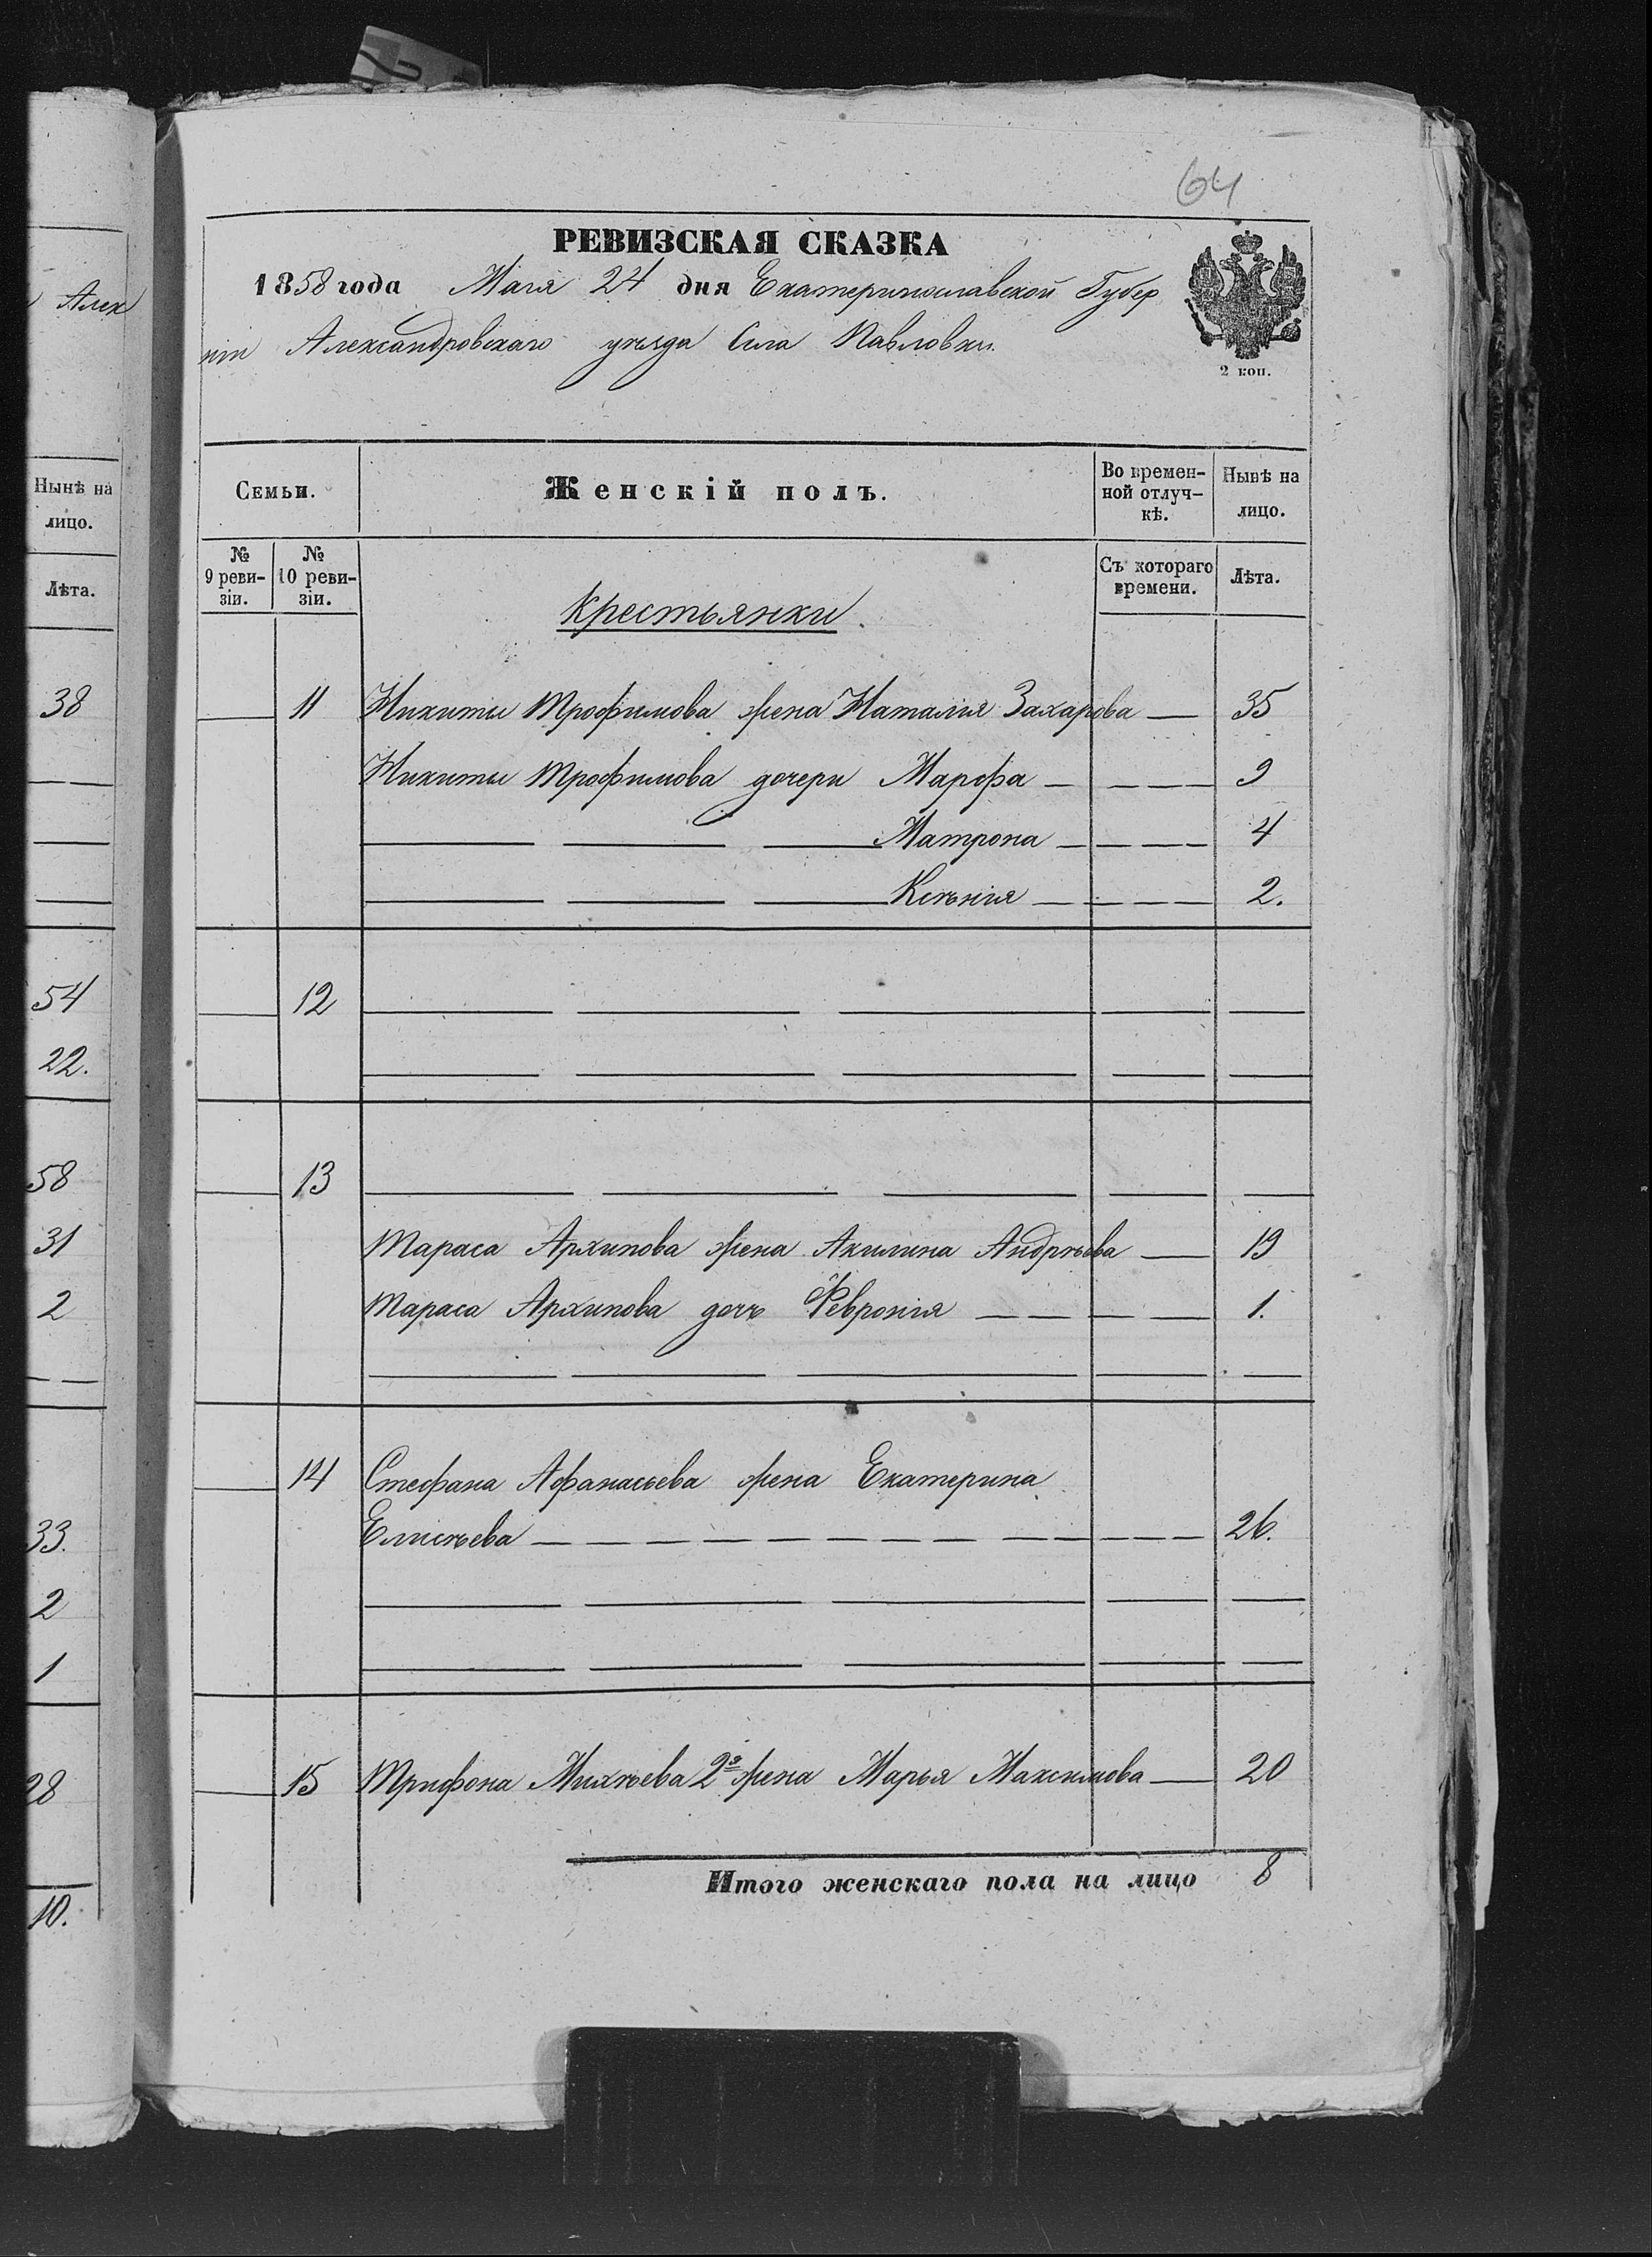 64
РЕВИЗСКАЯ СКАЗКА
1858 года Мая 24 дня Екатеринославской Губер
ніи Александровскаго уѣзда Села Павловки.
2 коп.
Алек
Нынѣ на
лицо.
Лѣта.
38
54
22.
58
31
2
33.
2
1
28
10.
Семьи. Женскій полъ. Во времен-ной отлуч-кѣ. Нынѣ на лицо.
№ 9 реви-зіи. № 10 реви-зіи. Съ котораго времени. Лѣта.
Крестьянки.
11 Никиты Трофимова жена Наталия Захарова — 35
Никиты Трофимова дочери Марфа — 9
Матрона — 4
Ксѣнія — 2.
12
13
Тараса Архипова жена Акилина Андрѣева — 19
Тараса Архипова дочь Феврония — 1.
14 Стефана Афанасьева жена Екатерина
Елисѣева — 26.
15 Трифона Михѣева 2я жена Марья Максимова — 20
Итого женскаго пола на лицо 8